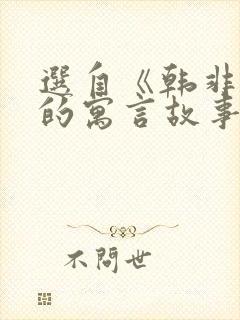 選自《韩非
的寓言故事
不問世